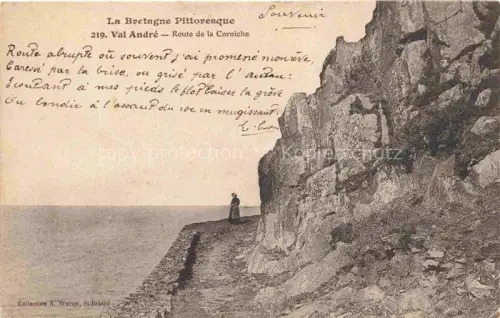 La Bretagne Pittoresque
Souvenir
219. Val André — Route de la Corniche
Route abrupte où souvent j'ai promené mon rêve,
Caressé par la brise, ou grisé par l'autan:
Ecoutant à mes pieds le flot baiser la grève
Ou bondir à l'assaut du roc en mugissant.
copy protection
Collection A. Waron, St-Brieuc